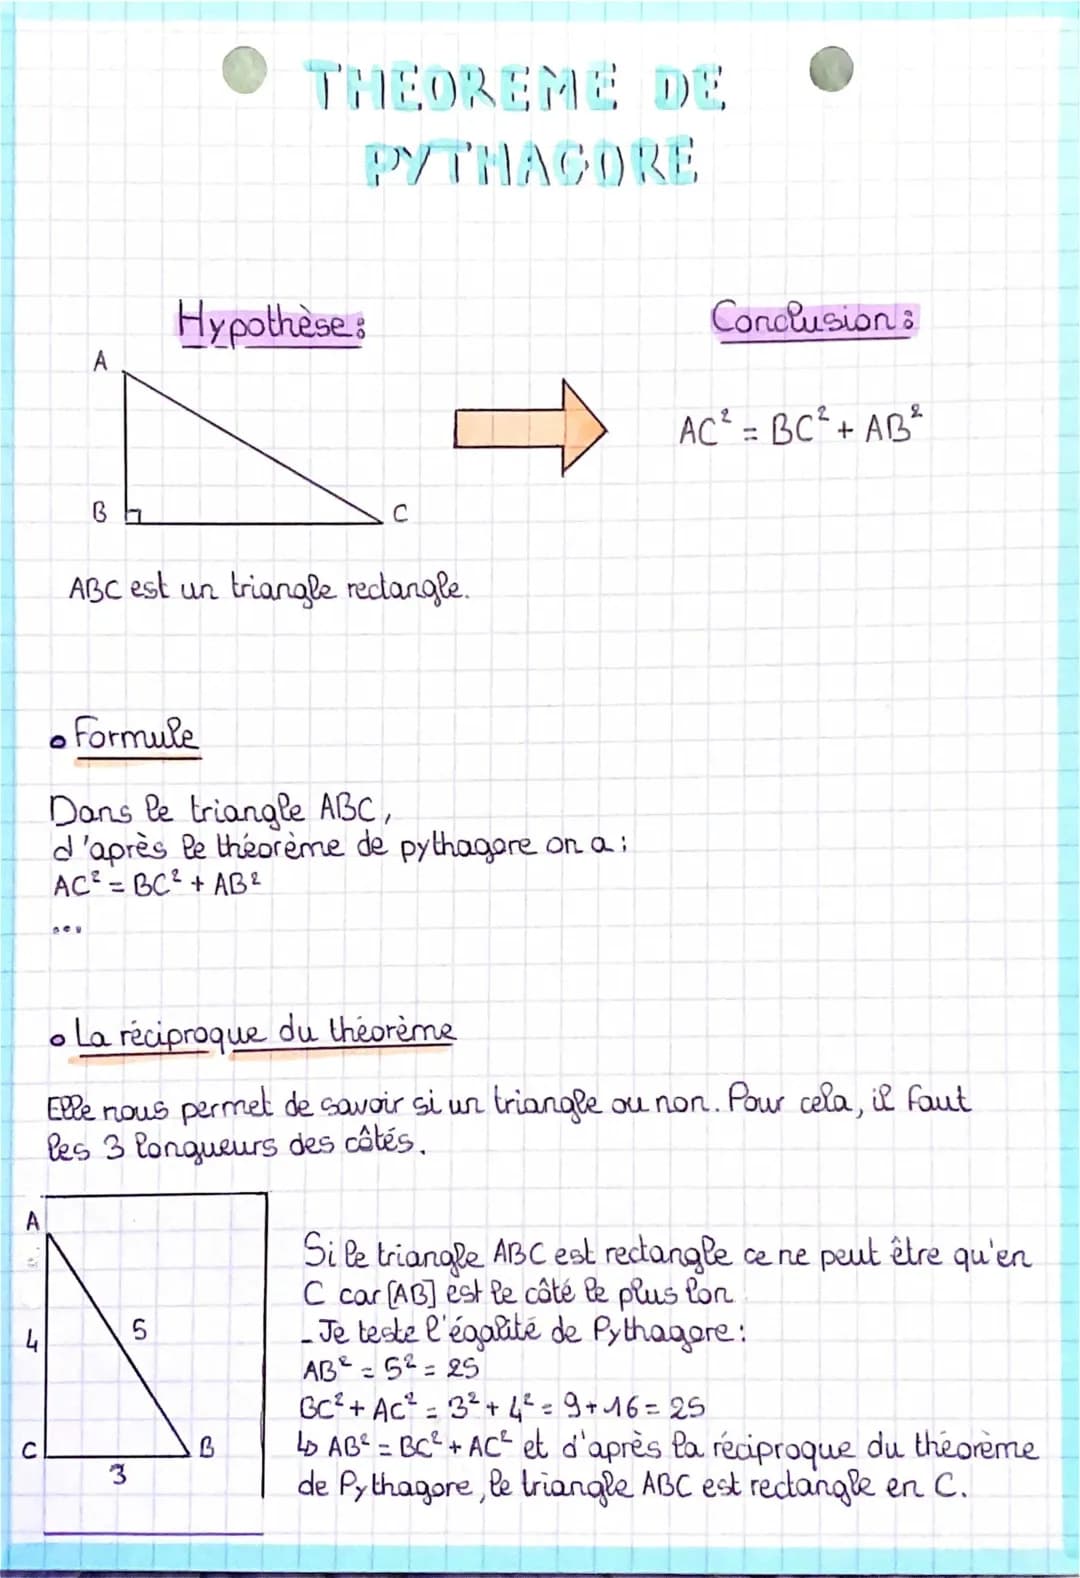 THEOREME DE
PYTHAGORE
Hypothèse:
Conclusion:
A
B
C
AC² = BC² + AB²
ABC est un triangle rectangle.
• Formule
Dans le triangle ABC,
d'après le théorème de pythagore on a :
AC² = BC² + AB²
...
• La réciproque du théorème
Elle nous permet de savoir si un triangle ou non. Pour cela, il faut
les 3 longueurs des côtés.
A
5
4
C
B
3
Si le triangle ABC est rectangle ce ne peut être qu'en
C car [AB] est le côté le plus lon
- Je teste l'égalité de Pythagore :
AB² = 5² = 25
BC² + AC² = 3² + 4² = 9 + 16 = 25
↳ AB² = BC² + AC² et d'après la réciproque du théorème
de Pythagore, le triangle ABC est rectangle en C.